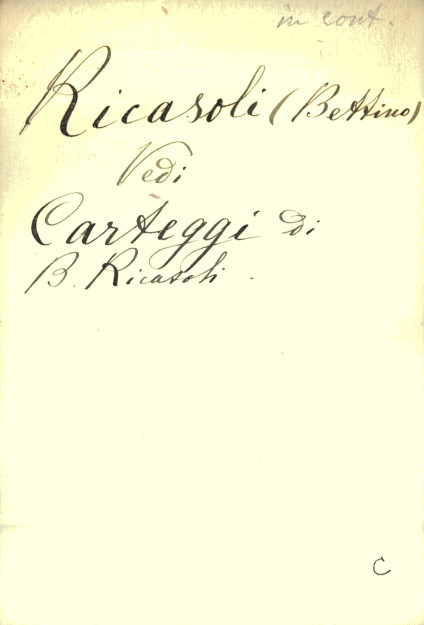 in cont.
Ricasoli (Bettino)
Vedi
Carteggi di
B. Ricasoli.
C